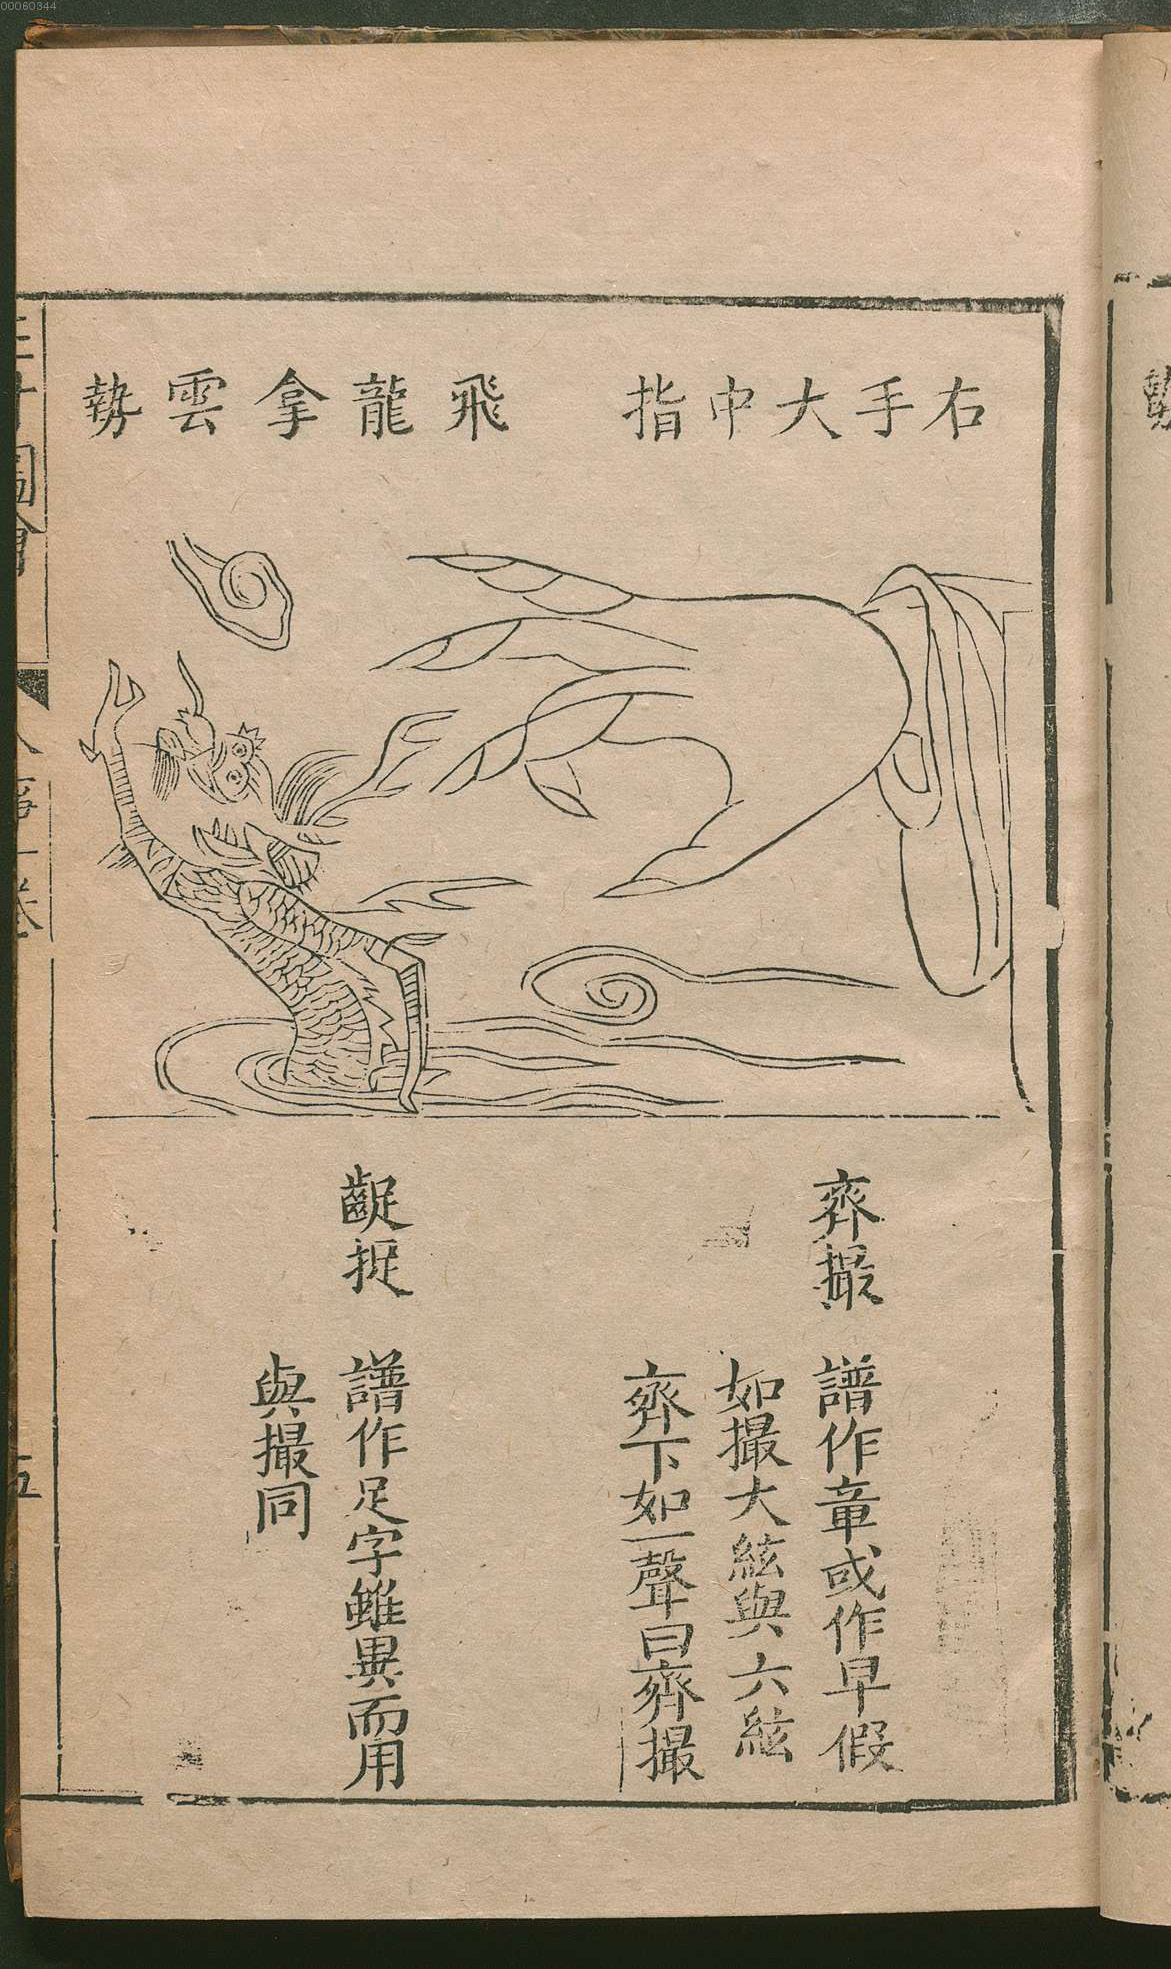 00060344
右手大中指　飛龍拿雲勢
齊撮　譜作章或作早假
如撮大絃與六絃
齊下如一聲曰齊撮
齪捉　譜作足字雖異而用
與撮同
三才圖會
人事一卷
五
勢